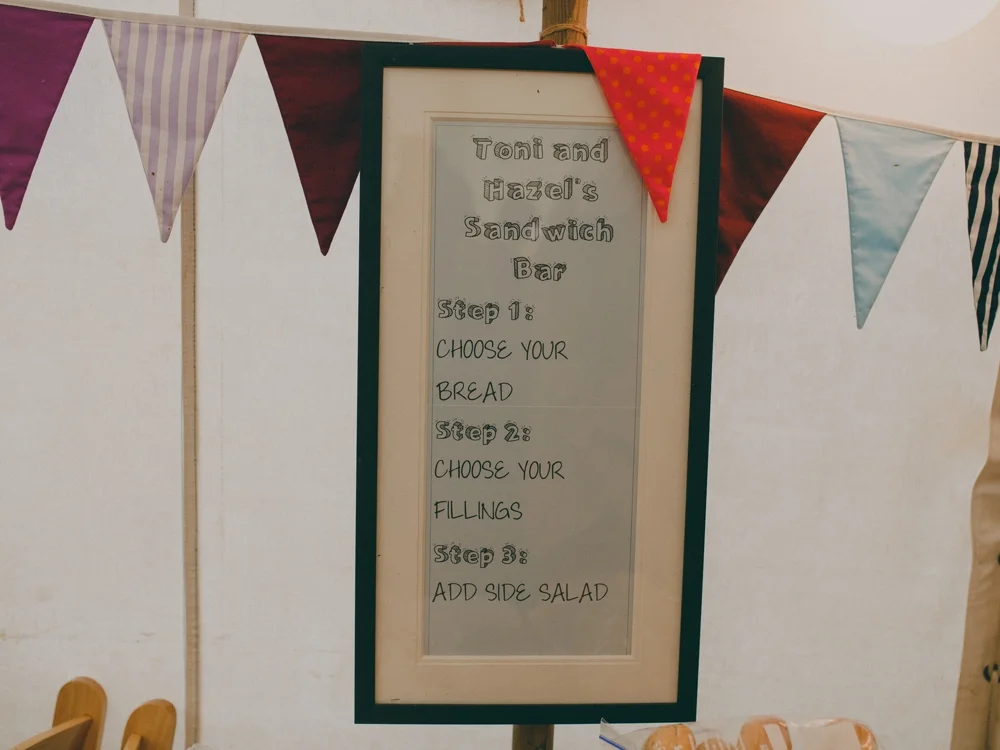 Toni and
Hazel's
Sandwich
Bar
Step 1:
CHOOSE YOUR
BREAD
Step 2:
CHOOSE YOUR
FILLINGS
Step 3:
ADD SIDE SALAD